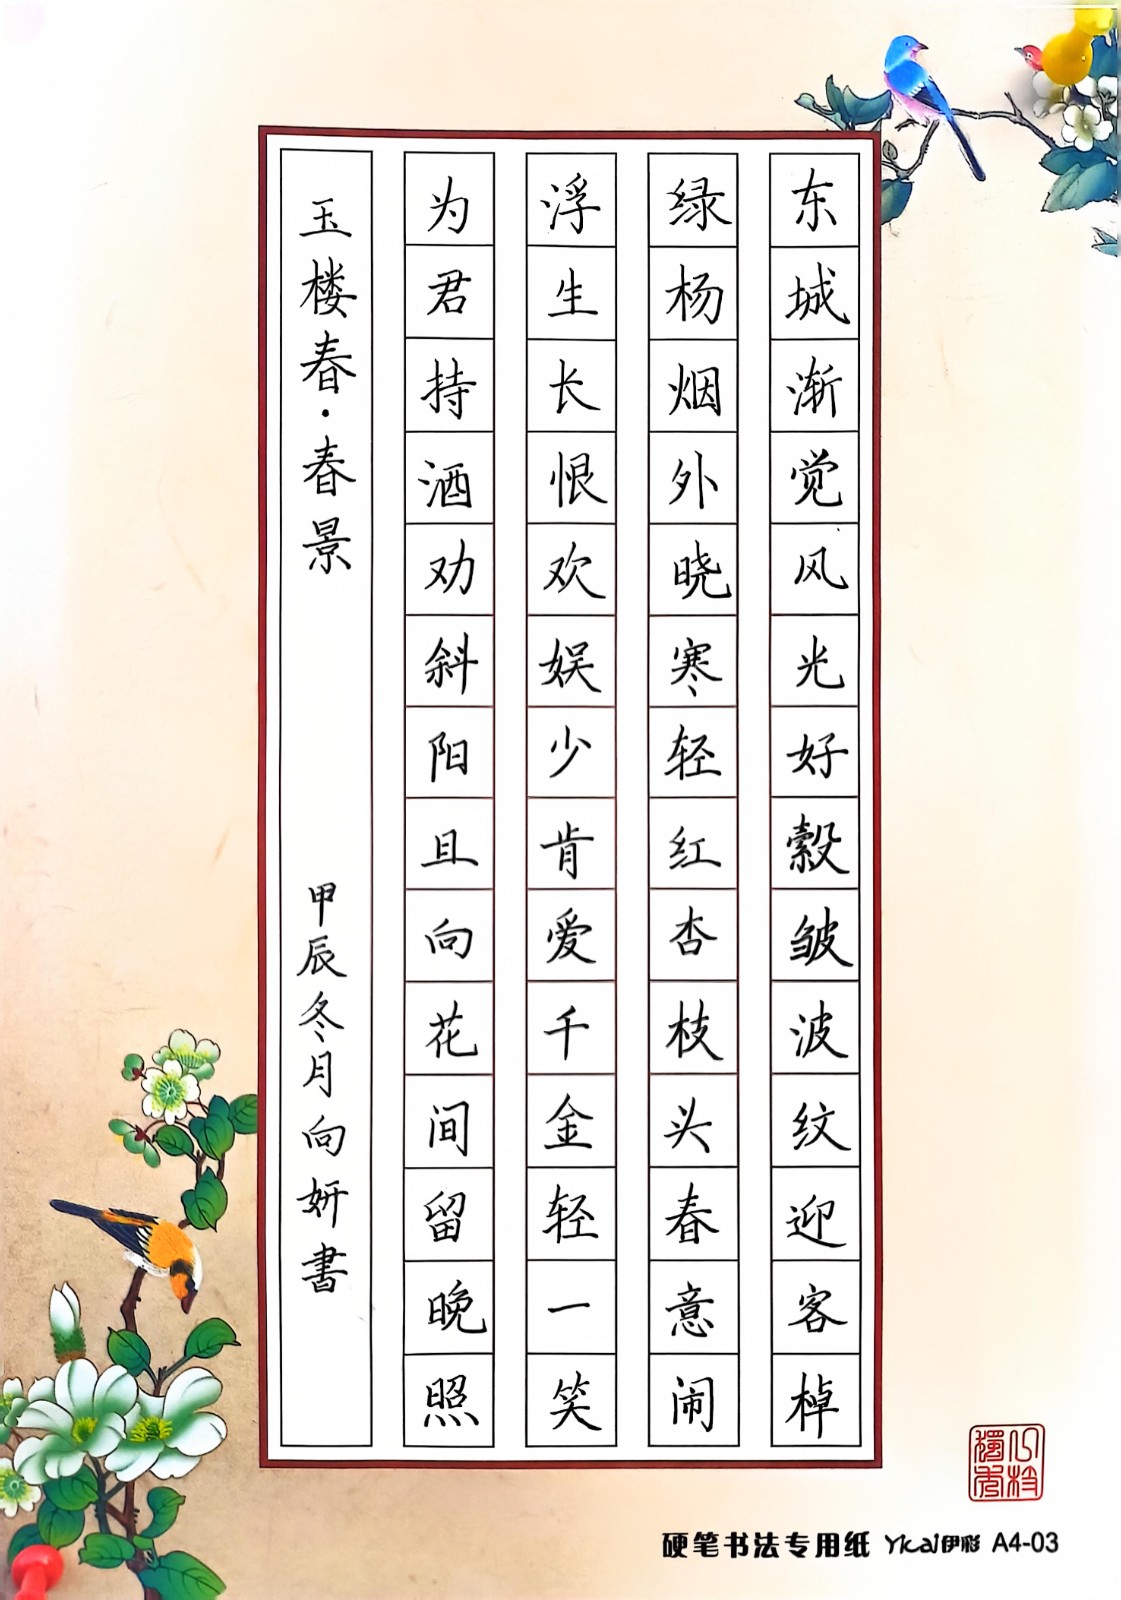 东城渐觉风光好縠皱波纹迎客棹
绿杨烟外晓寒轻红杏枝头春意闹
浮生长恨欢娱少肯爱千金轻一笑
为君持酒劝斜阳且向花间留晚照
玉楼春·春景
甲辰冬月向妍書
硬笔书法专用纸 Yicai伊彩 A4-03